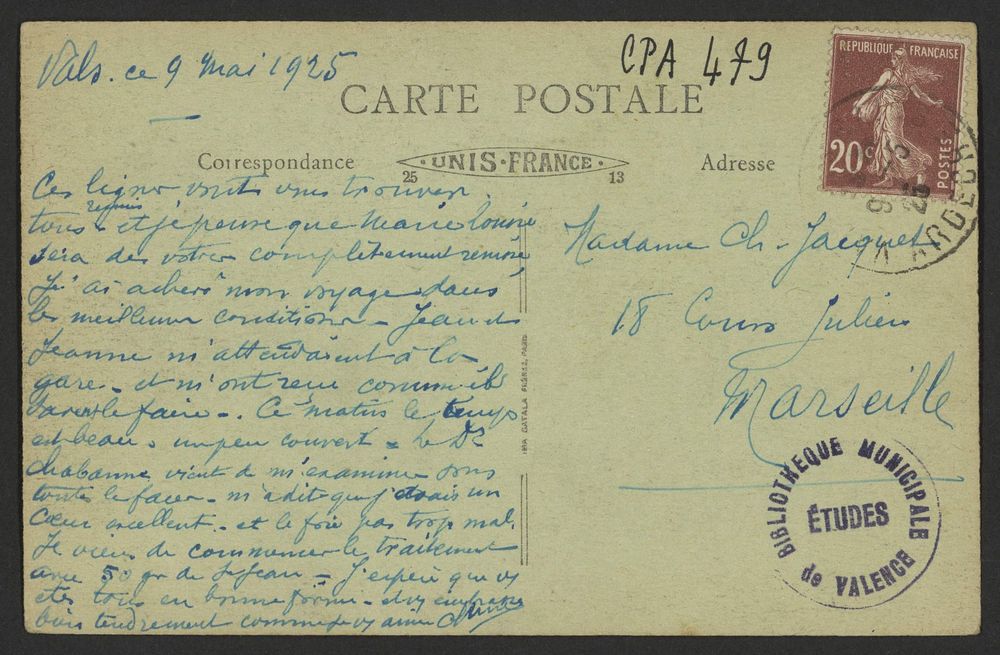 Vals. ce 9 Mai 1925
CPA 479
CARTE POSTALE
Correspondance
UNIS-FRANCE
25
13
Adresse
REPUBLIQUE FRANÇAISE
20c
POSTES
ARDECHE
Ces lignes vont vous trouver
tous réunis et je pense que Marie Louise
sera des votres complètement remise
J'ai achevé mon voyage dans
les meilleures conditions - Jean et
Jeanne m'attendaient à la
gare - et m'ont reçu comme ils
savent le faire -. Ce matin le temps
est beau. un peu couvert - Le Dr
Chabanne vient de m'examiner sous
toutes les faces - m'a dit que j'avais un
cœur excellent - et le foie pas trop mal.
Je viens de commencer le traitement
avec 50 gr de St Jean - J'espère que vs
êtes tous en bonne forme - et vs embrasse
bien tendrement comme je vs aime
Madame Ch. Jacquet
18 Cours Julien
Marseille
IMP. CATALA FRERES, PARIS
BIBLIOTHEQUE MUNICIPALE
ÉTUDES
de VALENCE